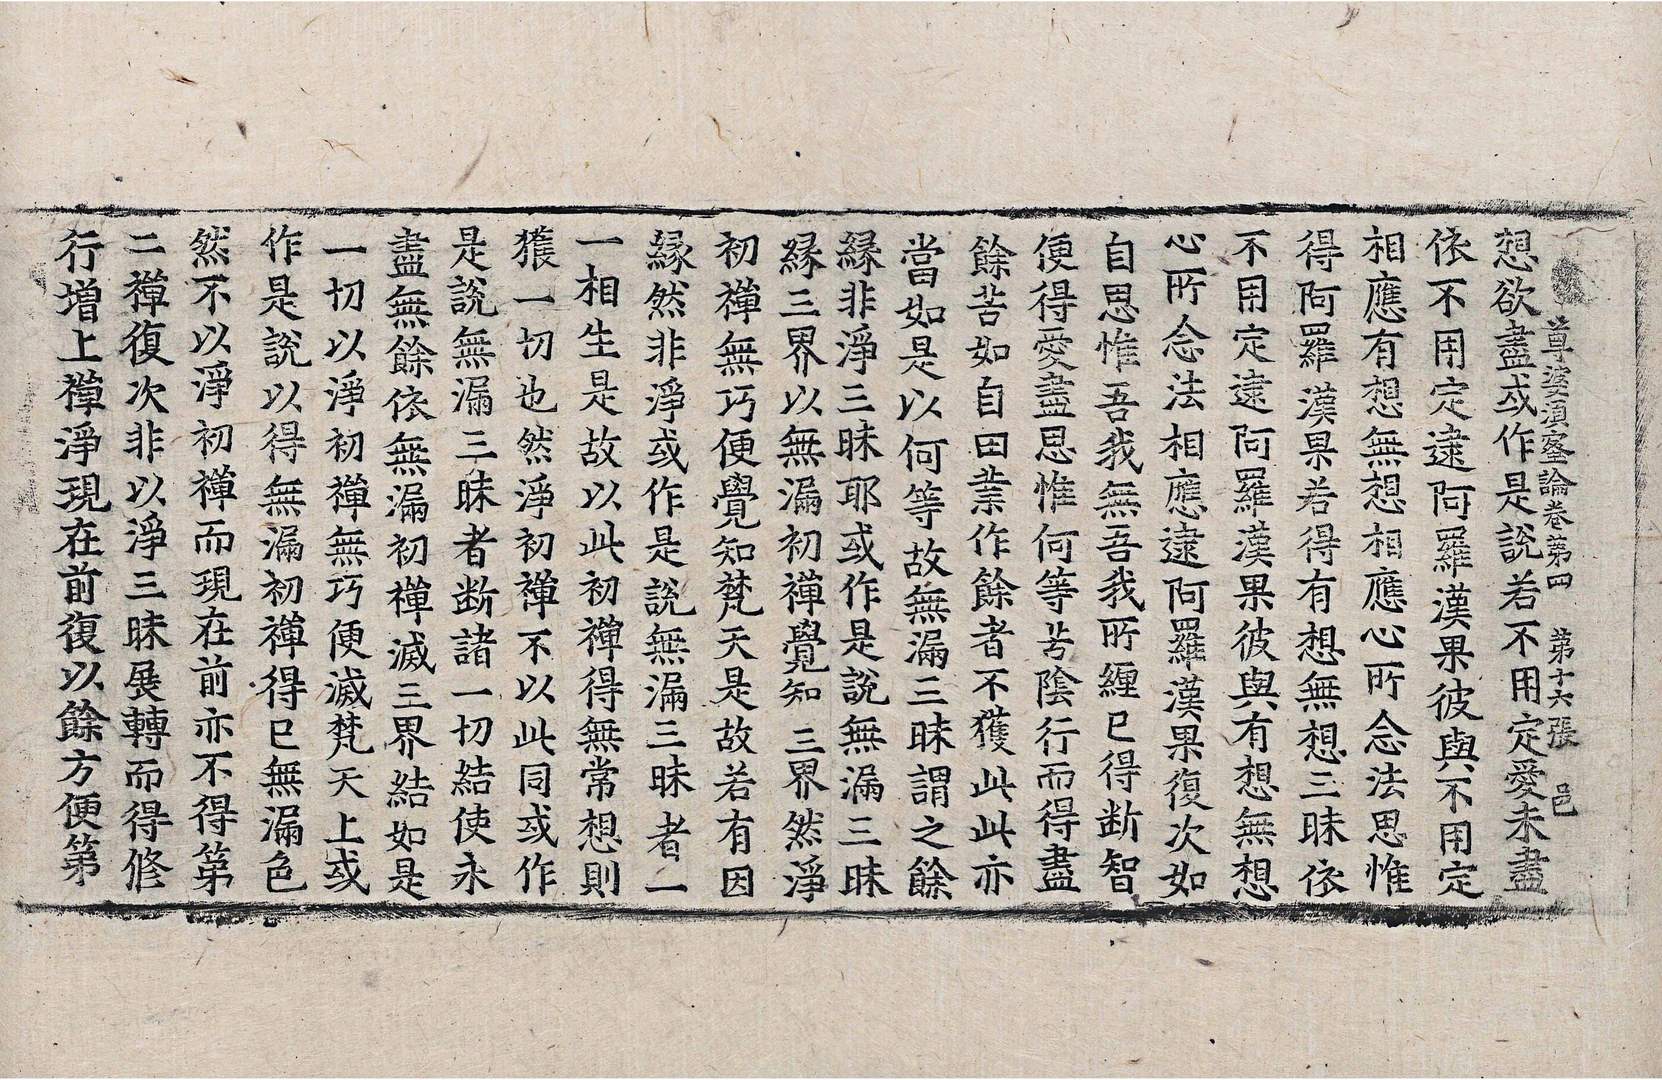 尊婆湏蜜論卷第四 第十六張 邑
想欲盡或作是說若不用定愛未盡
依不用定逮阿羅漢果彼與不用定
相應有想無想相應心所念法思惟
得阿羅漢果若得有想無想三昧依
不用定逮阿羅漢果彼與有想無想
心所念法相應逮阿羅漢果復次如
自思惟吾我無吾我所纏已得断智
便得愛盡思惟何等苦陰行而得盡
餘苦如自因業作餘者不獲此此亦
當如是以何等故無漏三昧謂之餘
縁非淨三昧耶或作是說無漏三昧
縁三界以無漏初禪覺知三界然淨
初禪無巧便覺知梵天是故若有因
縁然非淨或作是說無漏三昧者一
一相生是故以此初禪得無常想則
獲一切也然淨初禪不以此同或作
是說無漏三昧者断諸一切結使永
盡無餘依無漏初禪滅三界結如是
一切以淨初禪無巧便滅梵天上或
作是說以得無漏初禪得已無漏色
然不以淨初禪而現在前亦不得第
二禪復次非以淨三昧展轉而得修
行增上禪淨現在前復以餘方便第